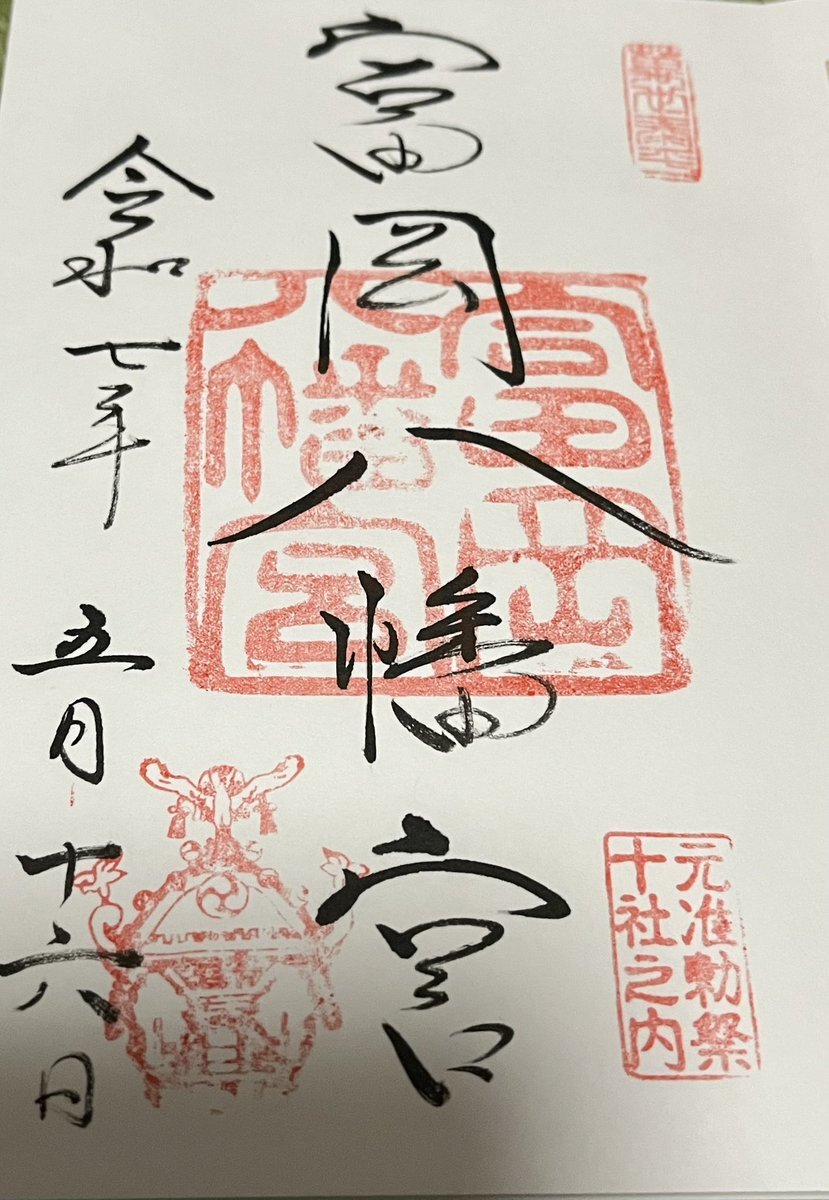 元准勅祭
十社之内
富岡八幡宮
富岡
八幡宮
令和七年五月十六日